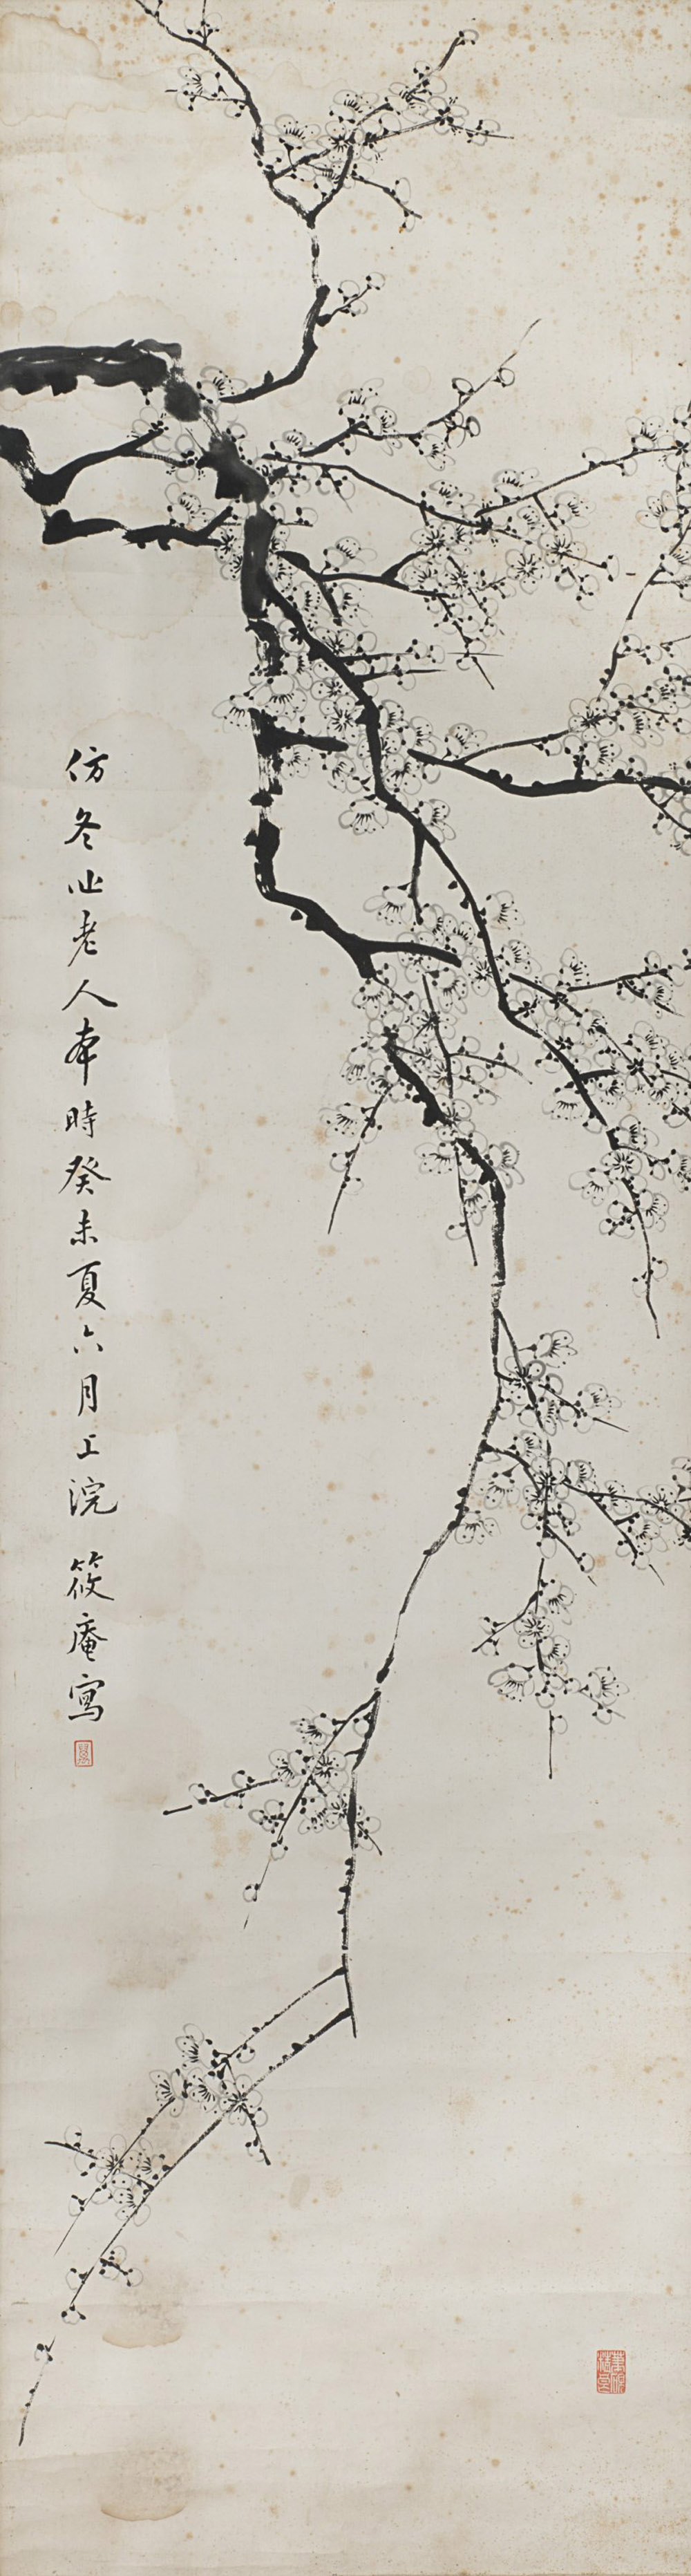 仿冬心老人本時癸未夏六月上浣 筱庵寫